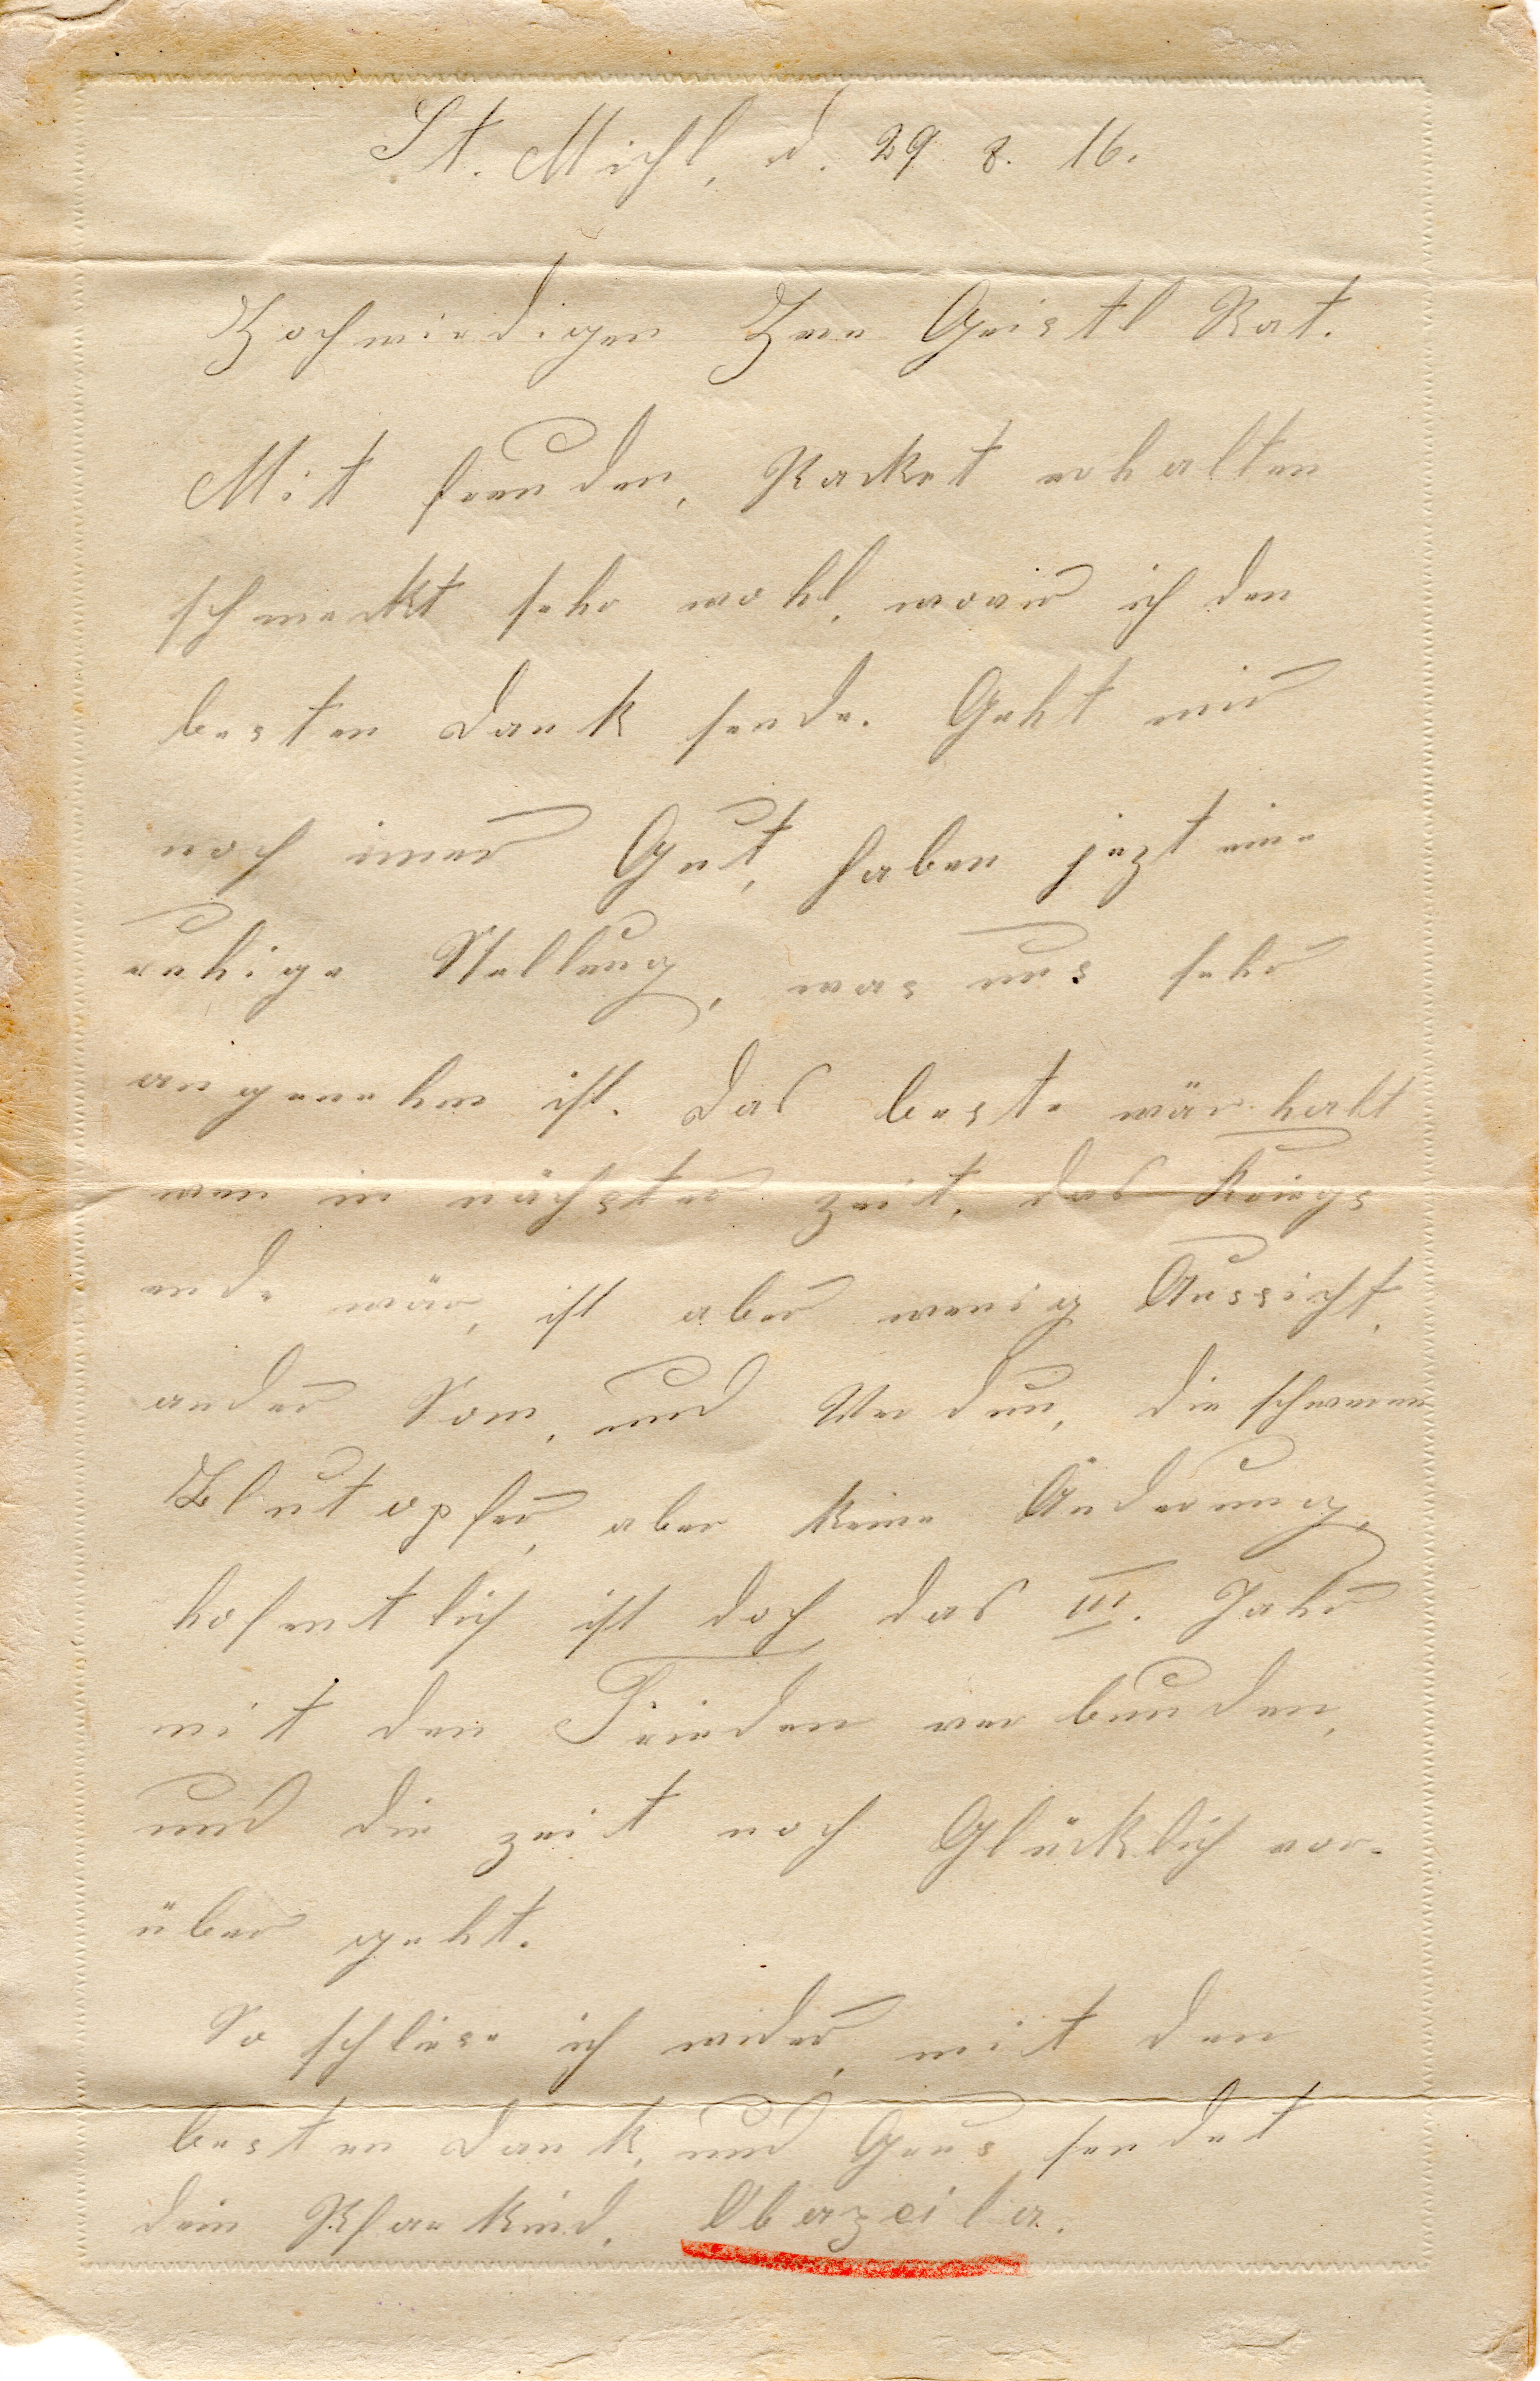 St. Michl, d. 29. 8. 16.
Hochwirdigen Herr Geistl Rat.
Mit freuden, Packet erhalten
schmeckt sehr wohl, wovir ich den
besten Dank sende. Geht mir
noch imer Gut, haben jezt eine
ruhige Stellung, was uns sehr
angenehm ist. Das beste wär halt
wen in nächster zeit, das Kriegs
ende wär, ist aber wenig Aussicht,
ander Som, und Verdun, die schweren
Blutopfer, aber keine Änderung,
hofentlich ist doch das III. Jahr
mit den Frieden verbunden,
und die zeit noch Glücklich vor-
über geht.
So schliese ich wider, mit den
besten Dank, und Grus sendet
dein Pfarkind. Obazeila.